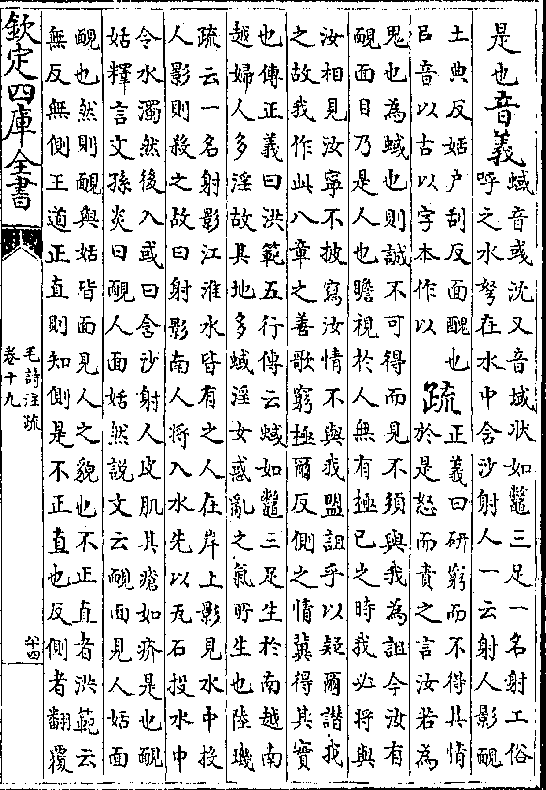 是也
音義
蜮音或沈又音域狀如鼈三足一名射工俗
呼之水弩在水中含沙射人一云射人影靦
土典反姑户刮反面醜也
㠯音以古以字本作以
疏
正義曰研窮而不得其情
於是怒而責之言汝若為
鬼也為蜮也則誠不可得而見不須與我為詛今汝有
靦面目乃是人也瞻視於人無有極已之時我必將與
汝相見汝寧不披寫汝情不與我盟詛乎以疑爾譖我
之故我作此八章之善歌窮極爾反側之情冀得其實
也傳正義曰洪範五行傳云蜮如鼈三足生於南越南
越婦人多淫故其地多蜮淫女惑亂之氣所生也陸璣
疏云一名射影江淮水皆有之人在岸上影見水中投
人影則殺之故曰射影南人將入水先以瓦石投水中
令水濁然後入或曰含沙射人皮肌其瘡如疥是也靦
姑釋言文孫炎曰靦人面姑然說文云靦面見人姑面
醜也然則靦與姑皆面見人之貌也不正直者洪範云
無反無側王道正直則知側是不正直也反側者翻覆
欽定四庫全書
毛詩注疏
卷十九
八十四